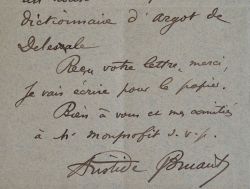 dictionnaire d'Argot de
Delesale
Reçu votre lettre, merci,
Je vais écrire pour le papier.
Bien à vous et mes amitiés
à Mr Monprofit s.v.p.
Aristide Bruant